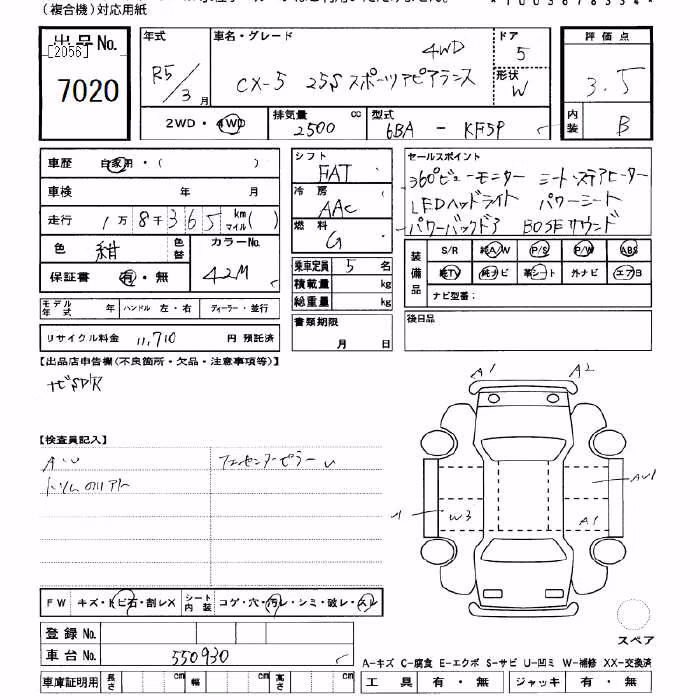 (複合機)対応用紙
出品No.
[2056]
7020
年式
R5/3月
車名・グレード
4WD
CX-5 25S スポーツアピアランス
ドア
5
形状
W
評価点
3.5
内装
B
2WD・4WD
排気量
2500
cc
型式
6BA - KF5P
車歴 自家用・( )
車検 年 月
走行 1万8千365 km マイル ( )
色 紺 色替
カラーNo.
42M
保証書 有・無
モデル年式 年 ハンドル 左・右 ディーラー・並行
リサイクル料金 11,710 円 預託済
シフト
FAT
冷房
AAC
燃料
G
乗車定員 5 名
積載量 kg
総重量 kg
書類期限
月 日
セールスポイント
360°ビューモニター シート・ステアヒーター
LEDヘッドライト パワーシート
パワーバックドア BOSEサウンド
装備品
S/R 純A/W P/S P/W ABS
純TV 純ナビ 革シート 外ナビ エアB
ナビ型番:
後日品
【出品店申告欄(不良箇所・欠品・注意事項等)】
ナビSD/R
【検査員記入】
A・U
A1 A2
AU1
W3
A1
FW キズ・トビ石・割レX シート内装 コゲ・穴・汚レ・シミ・破レ・スレ
登録No.
車台No. 550930
車庫証明用 長さ cm 幅 cm 高さ cm
スペア
A-キズ C-腐食 E-エクボ S-サビ U-凹ミ W-補修 XX-交換済
工具 有・無 ジャッキ 有・無